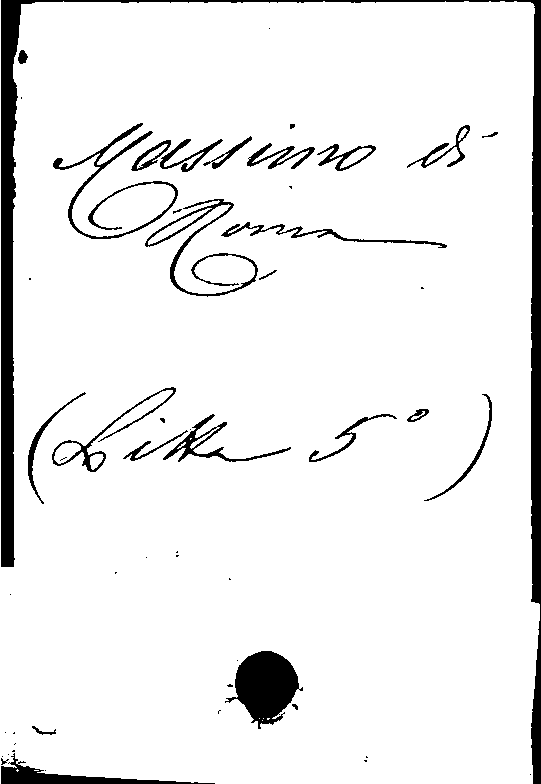 Massimo di
Roma
(Litta 5°)